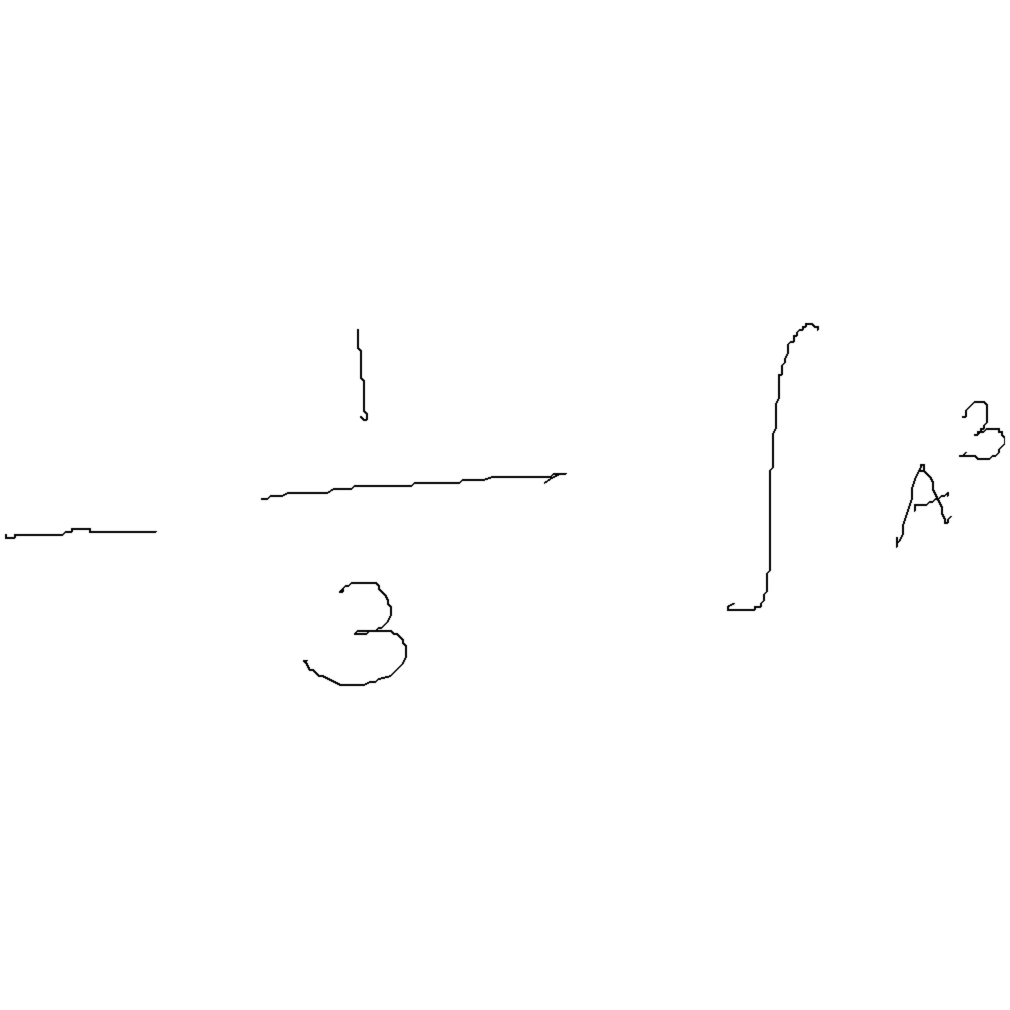 -\frac{1}{3}\int A^{3}